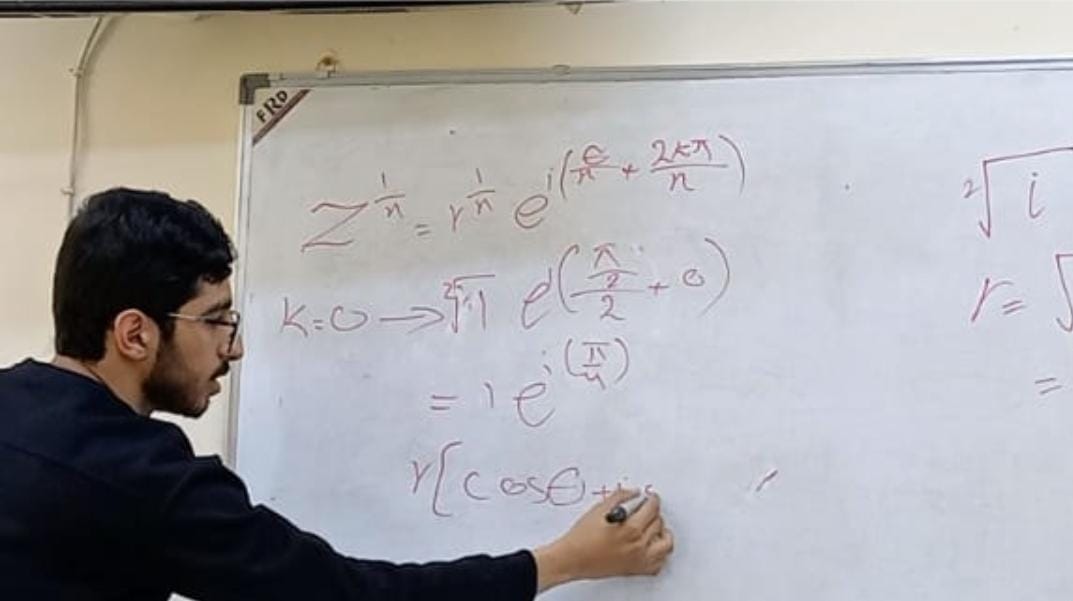 FRD
Z^{1/n} = r^{1/n} e^{i(θ/n + 2kπ/n)}
K=0 → ²√1 e^{i((π/2)/2 + 0)}
= 1 e^{i(π/4)}
r[cosθ + i s
²√i
r= √
=